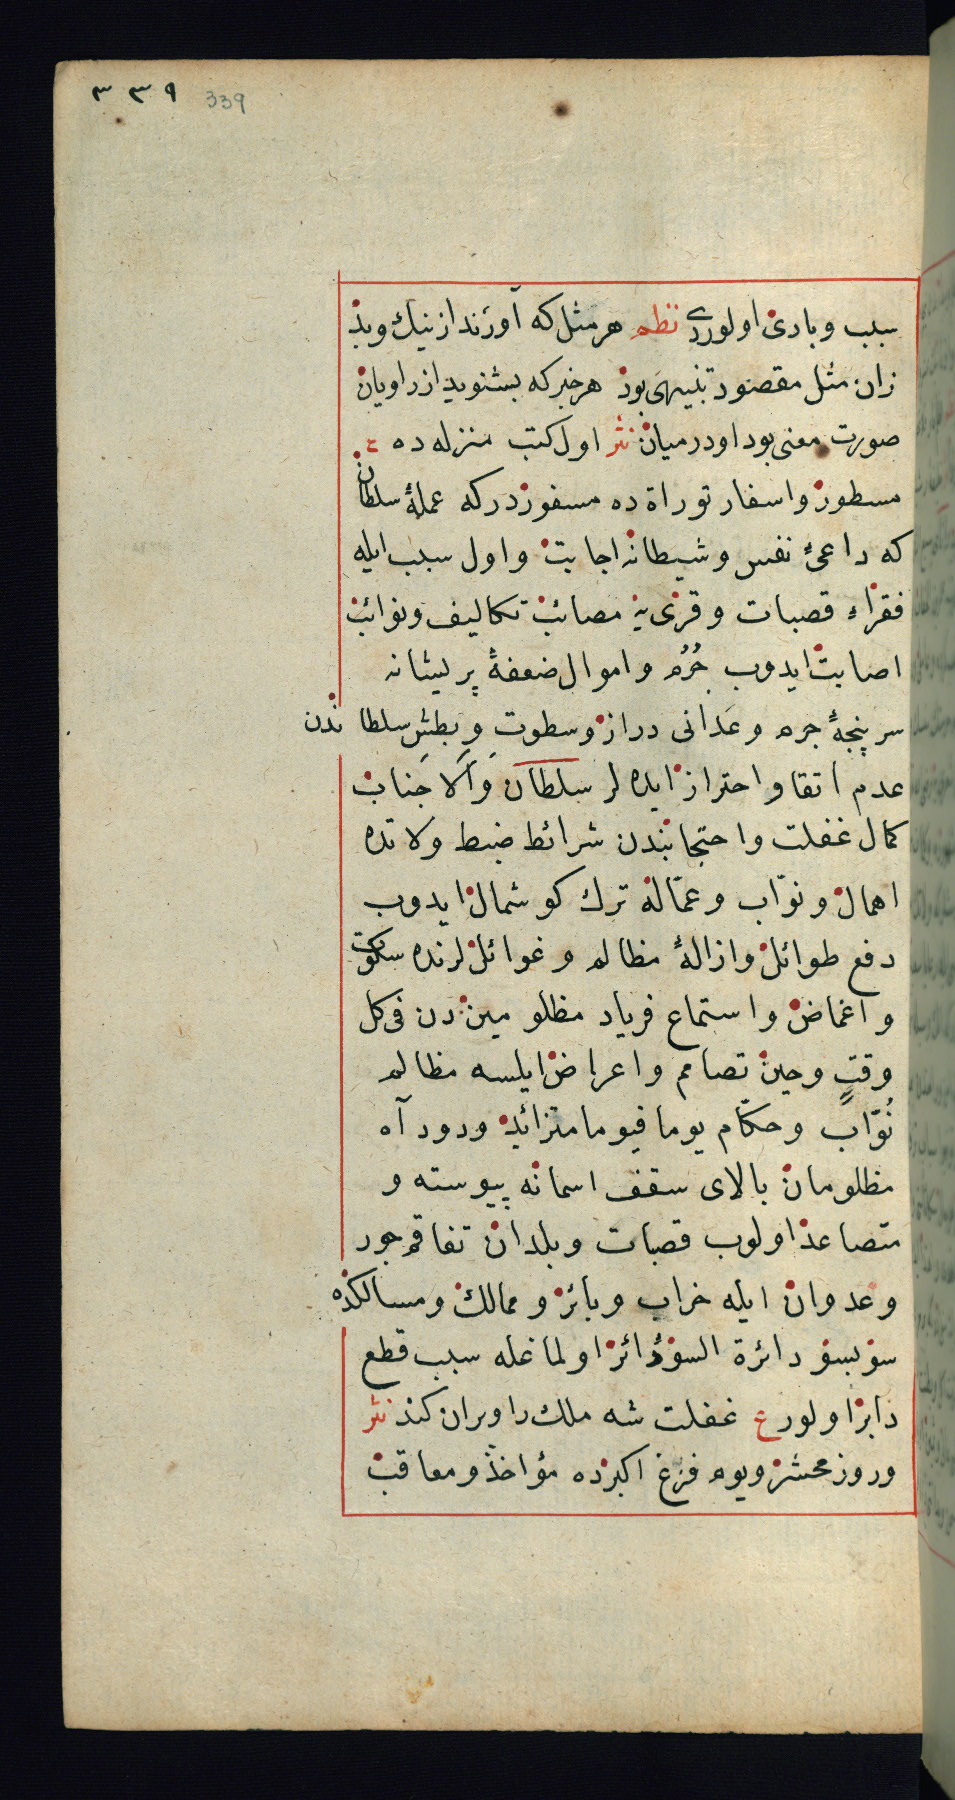 ٣٣٩ 339
سبب وبادئ اولوردی نظم هر مثل که آورند از نیك وبد
زان مثل مقصود تنبیهی بود هر خبر که بشنوید از راویان
صورت معنی بود او در میان نثر اول کتب منزله ده ع
مسطور واسفار توراة ده مسفوردر که عملهٔ سلطان
که داعیٔ نفس وشیطانه اجابت واول سبب ایله
فقراء قصبات وقری یه مصائب تکالیف ونوائب
اصابت ایدوب جُرُم واموال ضعفهٔ پریشانه
سر پنجهٔ جرم وعَدانی دراز وسطوت وبطش سلطاندن
عدم اتقا واحتراز ایده لر سلطان وَالا جَناب
کمال غفلت واحتجابندن شرائط ضبط ولاتده
اهمال ونوّاب وعمّاله ترك كوشمال ایدوب
دفع طوائل وازالهٔ مظالم وغوائل لرنده سکوت
واغماض واستماع فریاد مظلومین دن فی کل
وقتٍ وحین تصامم واعراض ایلسه مظالم
نُوّاب وحکّام یوما فیوما متزائد ودود آه
مظلومان بالای سقف اسمانه پیوسته و
متصاعد اولوب قصبات وبلدان تفاقم جور
وعدوان ایله خراب وبائر وممالك ومسالکده
سو بسو دائرة السوء دائر اولماغله سبب قطع
دابر اولور ع غفلت شه ملك را ویران کند نثر
وروز محشر ویوم فزع اکبرده مؤاخذ ومعاقب